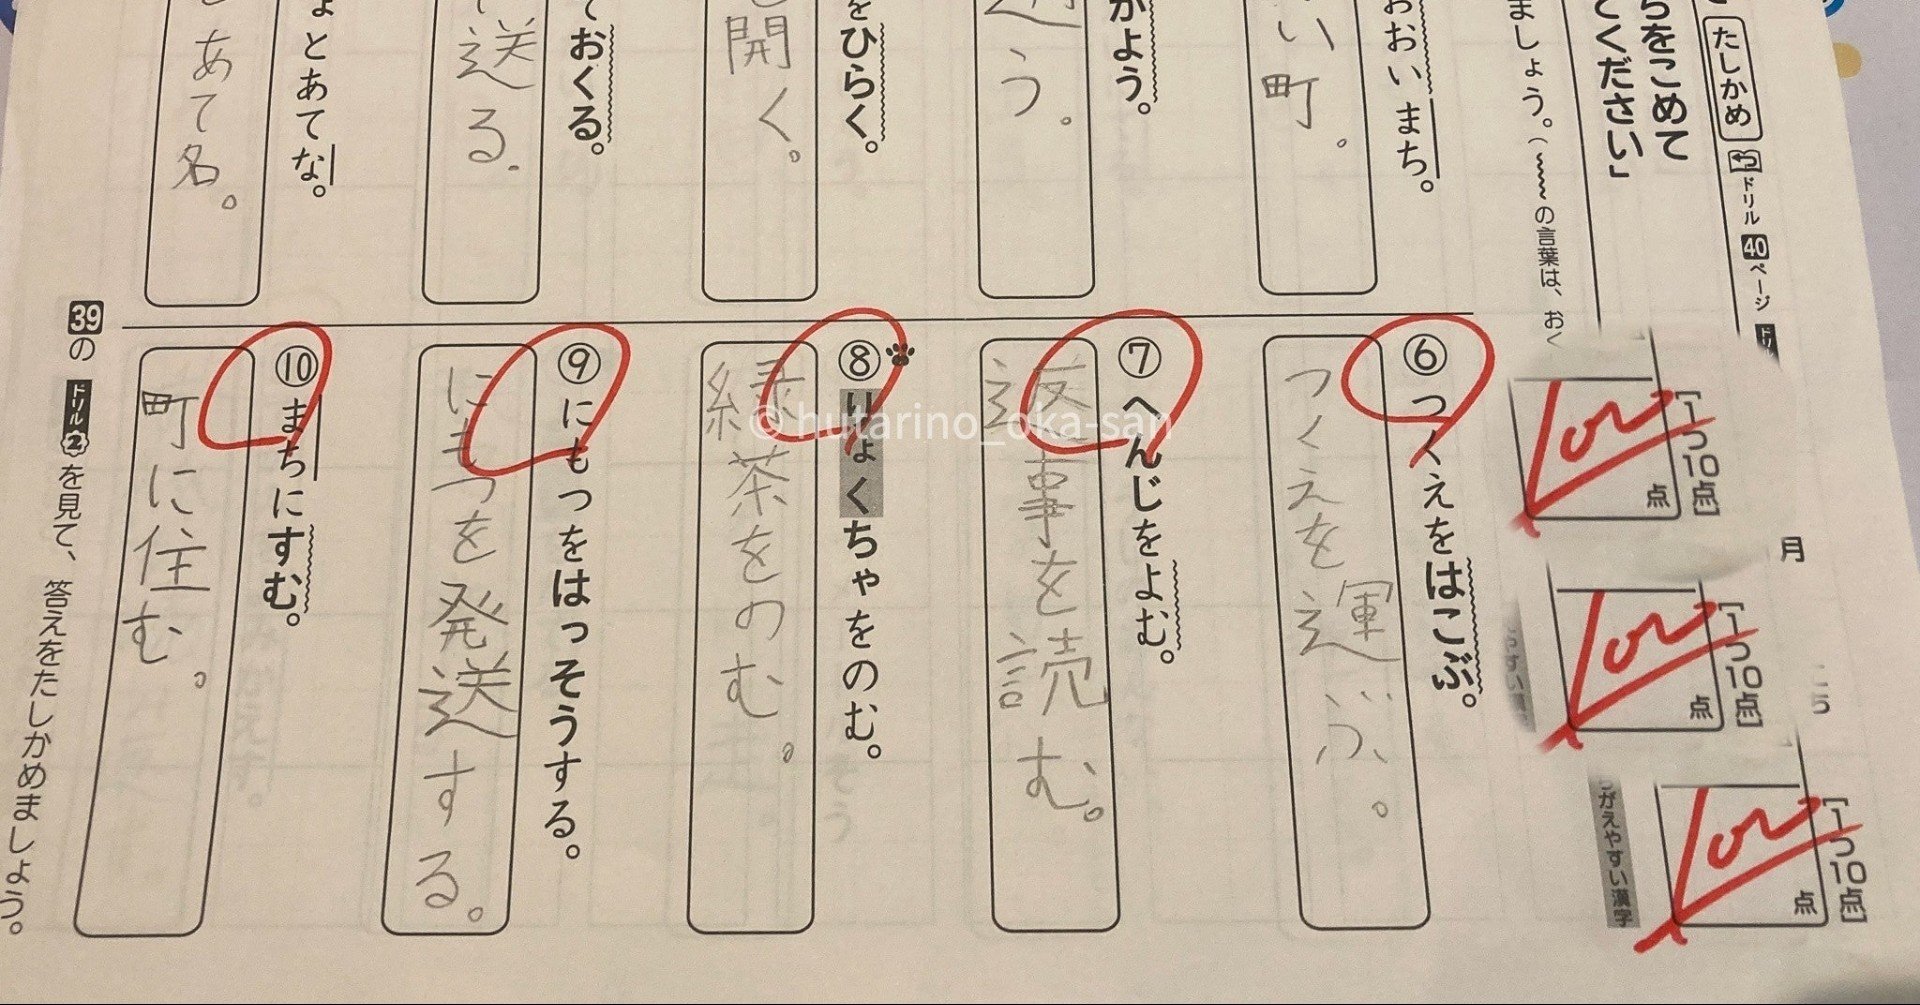 たしかめ ドリル 40 ページ
らをこめて
てください」
ましょう。(の言葉は、おく
おおいまち。
い町。
かよう。
う。
をひらく。
開く。
ておくる。
送る。
ょとあてな。
あて名。
月
[1つ10点]
点
[1つ10点]
点
[1つ10点]
点
ちがえやすい漢字
⑥ つくえをはこぶ。
つくえを運ぶ。
⑦ へんじをよむ。
返事を読む。
⑧ りょくちゃをのむ。
緑茶をのむ。
⑨ にもつをはっそうする。
にもつを発送する。
⑩ まちにすむ。
町に住む。
39の ドリル 2 を見て、答えをたしかめましょう。
© hutarino_oka-san